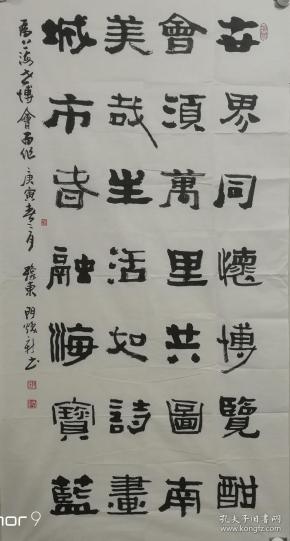 世界同懷博覽酣
會須萬里共圖南
美哉生活如詩畫
城市春融海寶藍
為上海世博會而作 庚寅春 月 豫東 門煥 書
nor 9
孔夫子旧书网